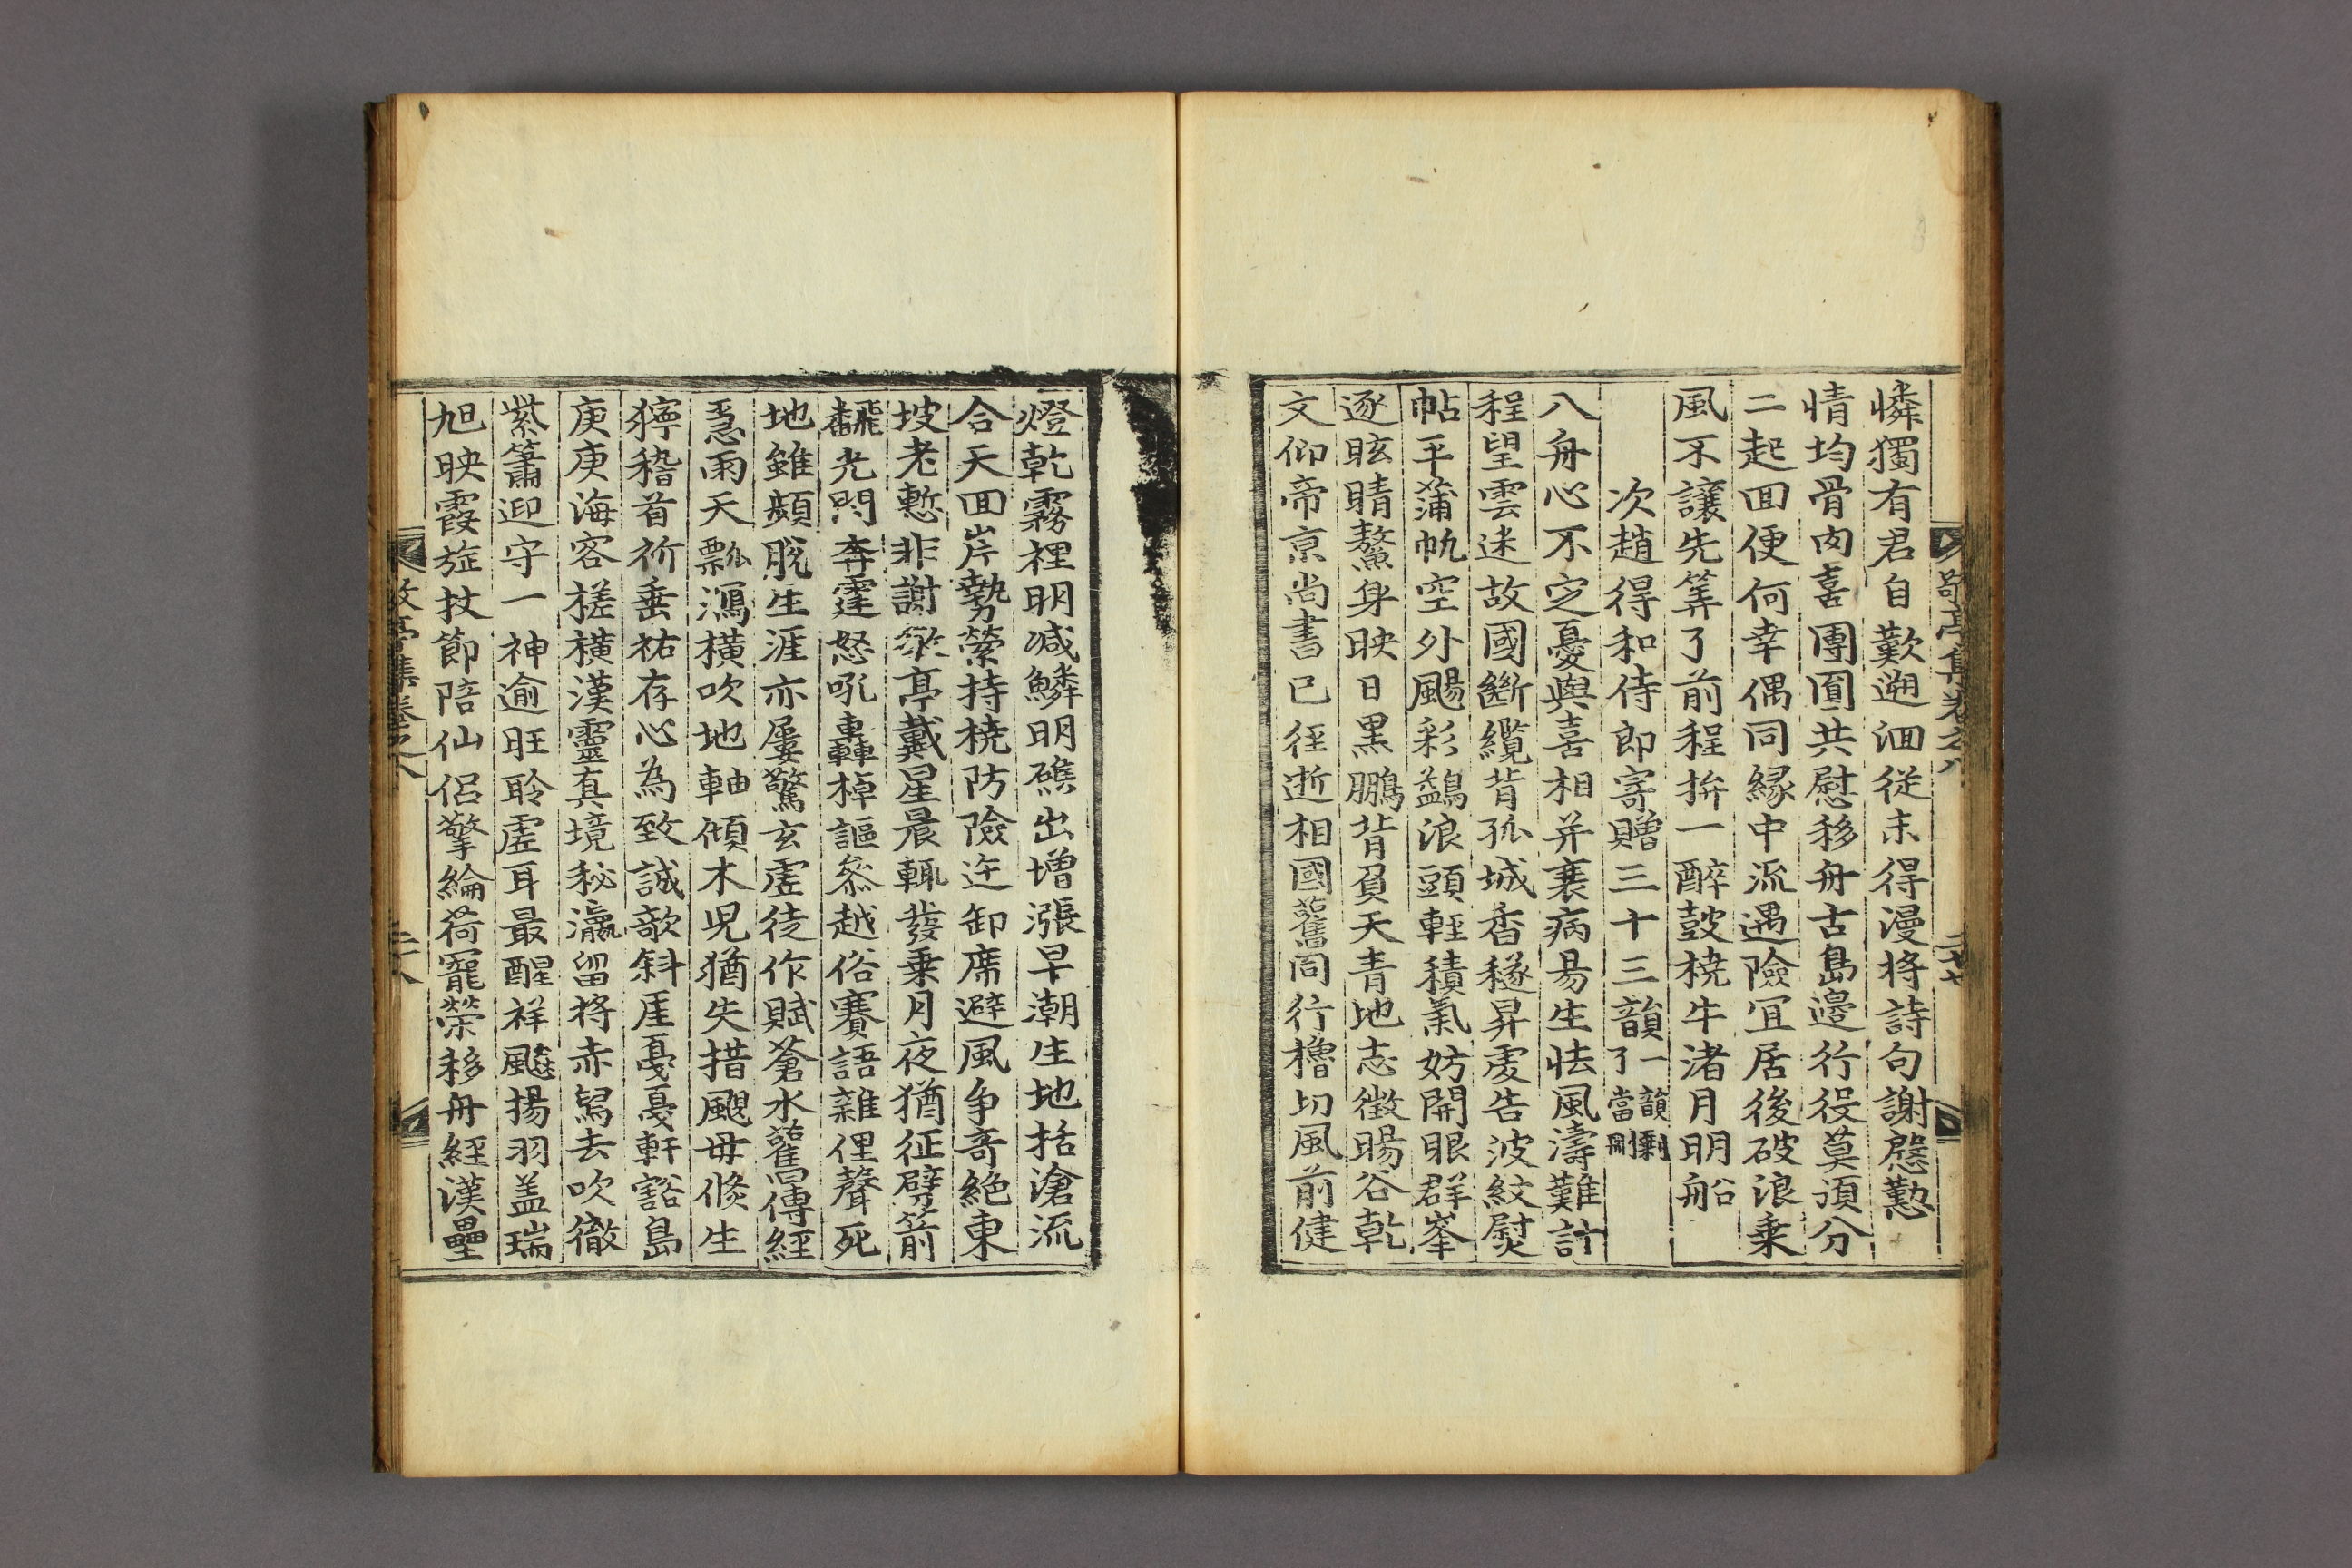 敬亭集卷之八 二十七
憐獨有君自歎遡洄從未得漫將詩句謝慇懃
情均骨肉喜團圓共慰移舟古島邊行役莫須分
二起回便何幸偶同緣中流遇險宜居後破浪乘
風不讓先筭了前程拚一醉鼓橈牛渚月明船
次趙得和侍郞寄贈三十三韻一韻剩了當刪
八舟心不定憂與喜相并衰病易生怯風濤難計
程望雲迷故國斷纜背孤城香穟昇虔告波紋熨
帖平蒲帆空外颺彩鷁浪頭輕積氣妨開眼群峯
逐眩睛鰲身映日黑鵬背負天靑地志徵暘谷乾
文仰帝京尙書已徑逝相國舊同行櫓切風前健
燈乾霧裡明减鱗明礁出增漲早潮生地括滄流
合天回岸勢縈持橈防險迮卸席避風爭奇絶東
坡老慙非謝樂亭戴星晨輒發乘月夜猶征劈箭
飜光閃奔霆怒吼轟棹謳叅越俗賽語雜俚聲死
地雖頻脫生涯亦屢驚玄虛徒作賦蒼水舊傳經
急雨天瓢瀉橫吹地軸傾木兒猶失措颶母倐生
獰稽首祈垂祐存心為致誠欹斜厓戞戞軒豁島
庚庚海容槎橫漢靈真境秘瀛留將赤舃去吹徹
紫簫迎守一神逾旺聆虛耳最醒祥飈揚羽盖瑞
旭映霞旋扙節陪仙侶擎綸荷寵榮移舟經漢壘
敬亭集卷之八 二十八